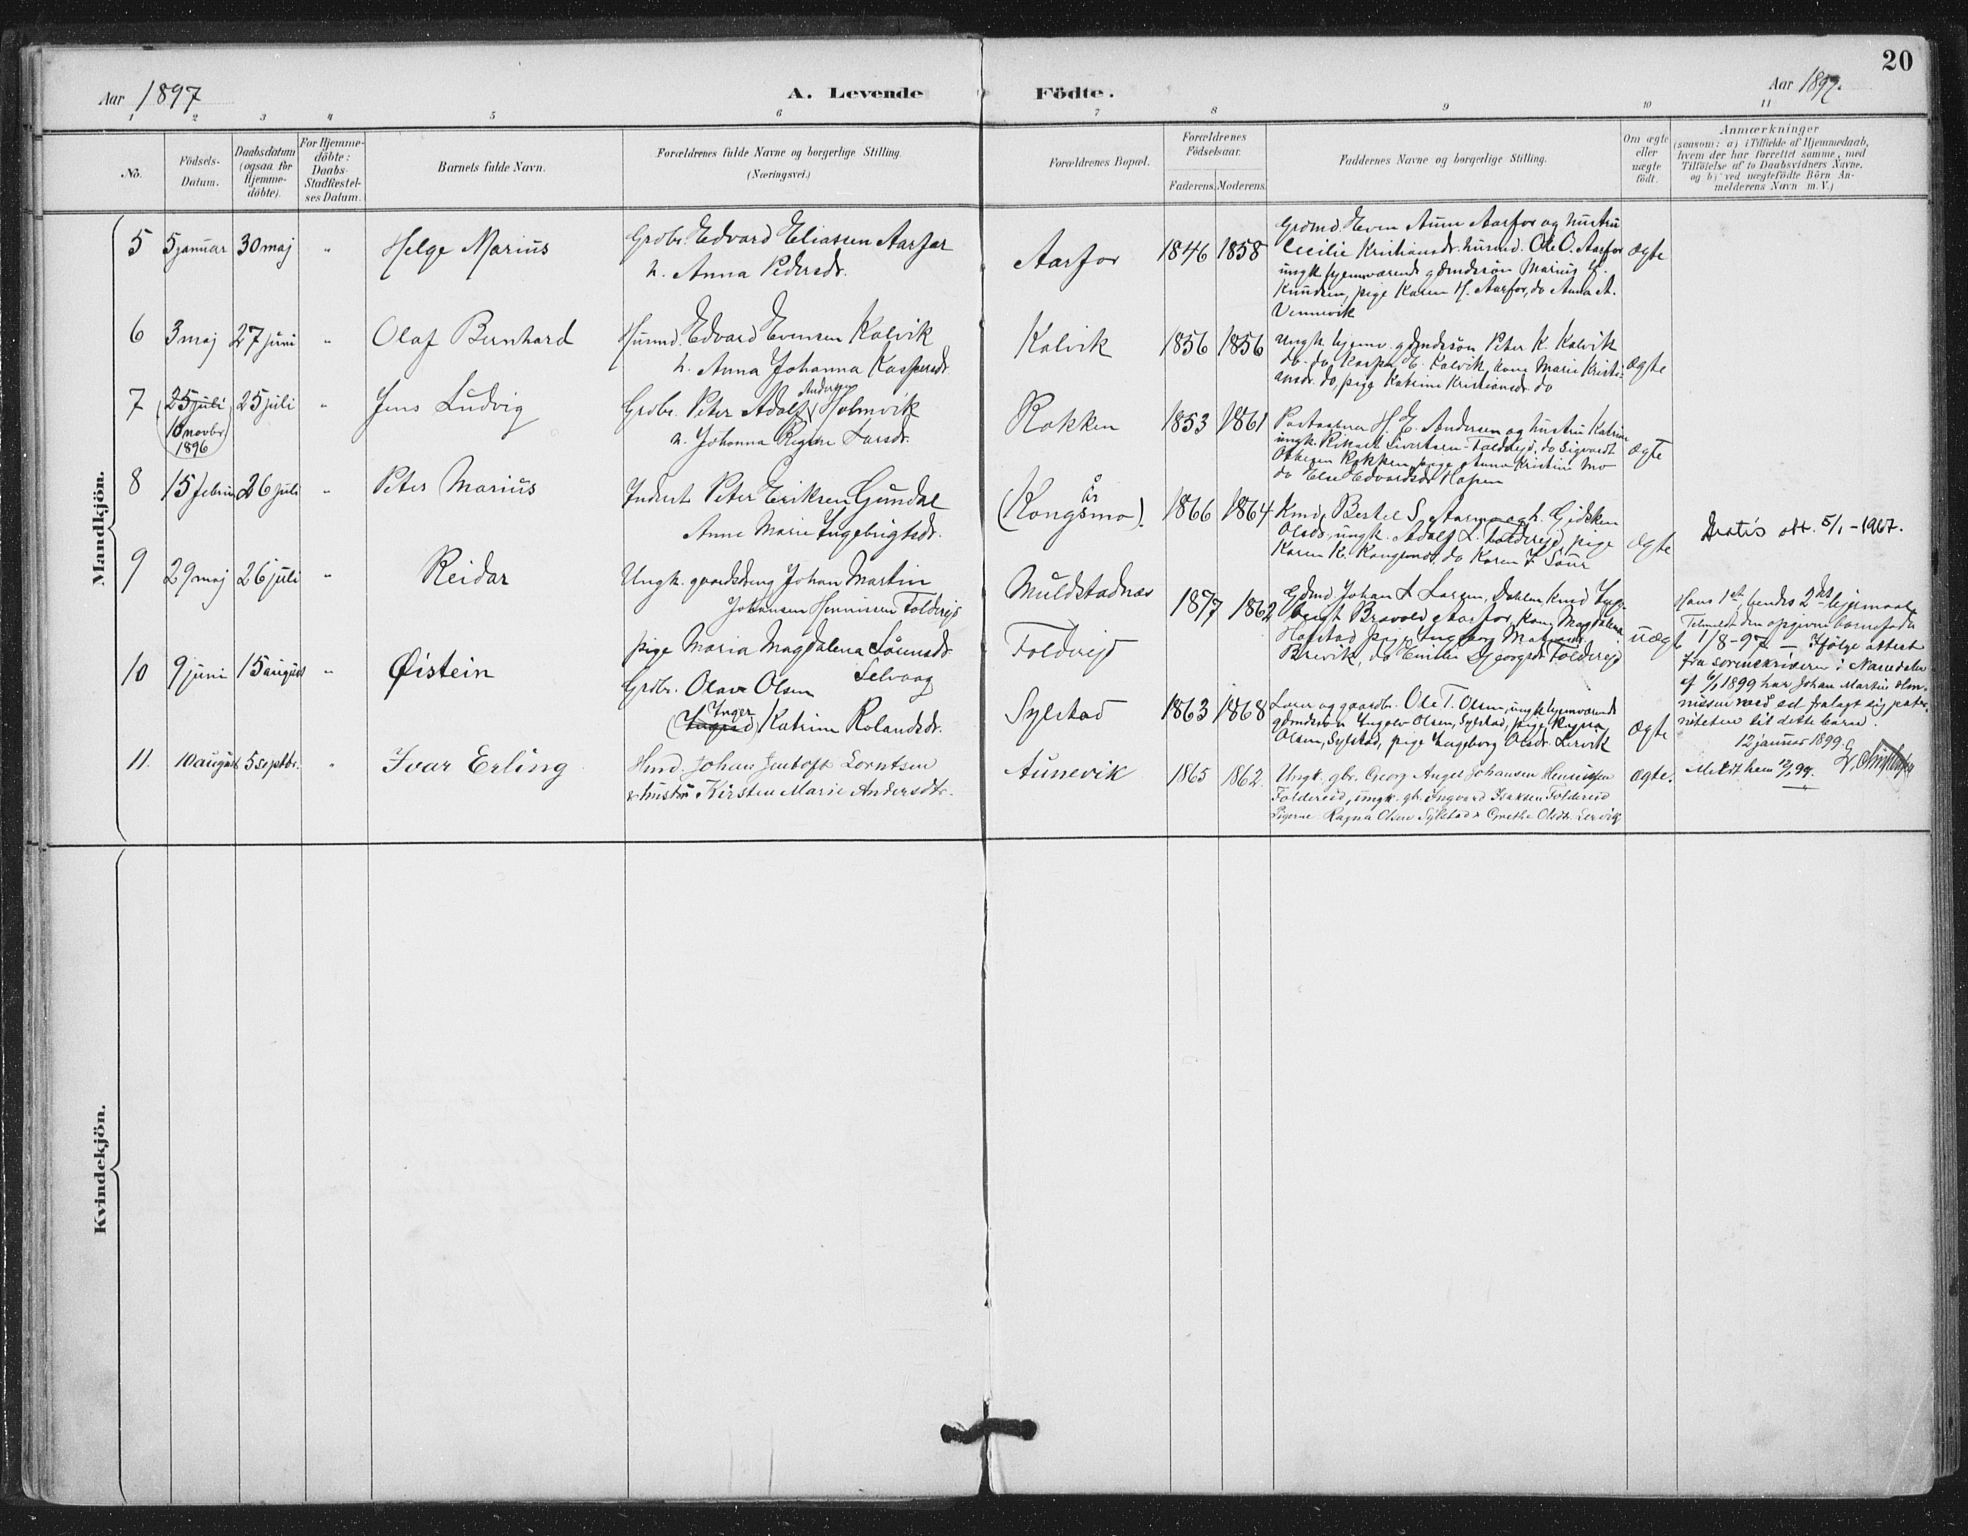 20
Aar 1897 A. Levende Födte. Aar 1897.
1 2 3 4 5 6 7 8 9 10 11
No.
Födsels-
Datum.
Daabsdatum
(ogsaa for
Hjemme-
döbte).
For Hjemme-
döbte:
Daabs-
Stadfæstel-
ses Datum.
Barnets fulde Navn.
Forældrenes fulde Navne og borgerlige Stilling.
(Næringsvei.)
Forældrenes Bopæl.
Forældrenes
Födselsaar.
Faderens. Moderens.
Faddernes Navne og borgerlige Stilling.
Om ægte
eller
uægte
födt.
Anmærkninger
(saasom: a) i Tilfælde af Hjemmedaab,
hvem der har forrettet samme, med
Tilföielse af to Daabsvidners Navne,
og b) ved uægtefödte Börn An-
melderens Navn m. V.)
Mandkjön.
5 5 januar 30 maj " Helge Marius
Grdbr. Edvard Eliassen Aarfor
h. Anna Pedersdr.
Aarfor 1846 1858
Grdmd. Even Aune Aarfor og hustru
Cecilie Kristiansdr. husmd. Ole O. Aarfor
ungk. hjemværende gdmdssøn Marius
Knudsen, pige Karen H. Aarfor, do Anna A.
Vennevik
ægte
6 3 maj 27 juni " Olaf Bernhard
Husmd. Edvard Evensen Kalvik
h. Anna Johanna Kaspersdr.
Kalvik 1856 1856
Ungk. hjemv. gdmdssøn Peter K. Kalvik
do. do Kaspar E. Kalvik, kone Marie Kristi-
ansdr. do, pige Katrine Kristiansdr. do
ægte
7 (25 juli) 25 juli " Jens Ludvig
10 novbr.
1896
Grdbr. Peter Adolf Andersen Holmvik
h. Johanna Regine Larsdr.
Rokken 1853 1861
Postaabner H. E. Andersen og hustru Katrine
ungk. Rikart Sivertsen Foldrejd, do Sigvardt
Ottesen Rokken, pige Anna Kristine Mo
do Else Edvardsdr. Hopen
ægte
8 15 februar 26 juli " Peter Marius
Inderst Peter Eriksen Gundal
Anne Marie Ingebrigtsdr.
(Kongsmo). 1866 1864
Kmd. Bertel S. Aarmo og h. Gidsken
Olsdr., ungk. Adolf L. Foldrejd, pige
Karen K. Kongsmo, do Karen
ægte
Gratis att. 5/1-1967.
9 29 maj 26 juli " Reidar
Ungk. gaardsdreng Johan Martin
Johansen Henrissen Foldrejd
pige Maria Magdalena Sörensdr.
Selvaag
Muldstadnes
Foldrejd
1877 1862
Gdmd. Johan L. Larsen, Dahlen, kmd Ing-
brigt Bravold Aarfor, kone Magdalena
Hofstad, pige Ingeborg
Brevik, do Emilie Georgsdr. Foldrejd
uægte
Hans 1ste, hendes 2det lejermaal.
Tilmeldt den opgivne barnefader
1/8-97. — Ifölge attest
fra sorenskriveren i Namdalen
af 6/1 1899 har Johan Martin Hen-
nissen med ed fralagt sig pater-
niteten til dette barn.
12 januar 1899.
Meldt ham 12/1 99.
10 9 juni 15 august " Øistein
Grdbr. Olava Olsen
Inger
(Ingrid) Katrine Rolandsdr.
Sylstad 1863 1868
Lærer og gaardbr. Ole T. Olsen, ungk. hjemværende
gdmdssøn Ingolv Olsen, Sylstad, pige Ragna
Olsen, Sylstad, pige Ingeborg Olsdr. Lervik
ægte
11. 10 august 5 septbr. " Ivar Erling
Hmd. Johan Gustaft Lorntsen
& hustru Kirsten Marie Andersdtr.
Aunevik 1865 1862.
Ungk. gbr. Georg Angel Johansen Henrissen
Foldereid, ungk. gbr. Ingvard Isaksen Foldereid
Pigerne Ragna Olsen Sylstad & Grethe Olsdtr. Lervik
ægte.
Kvindekjön.